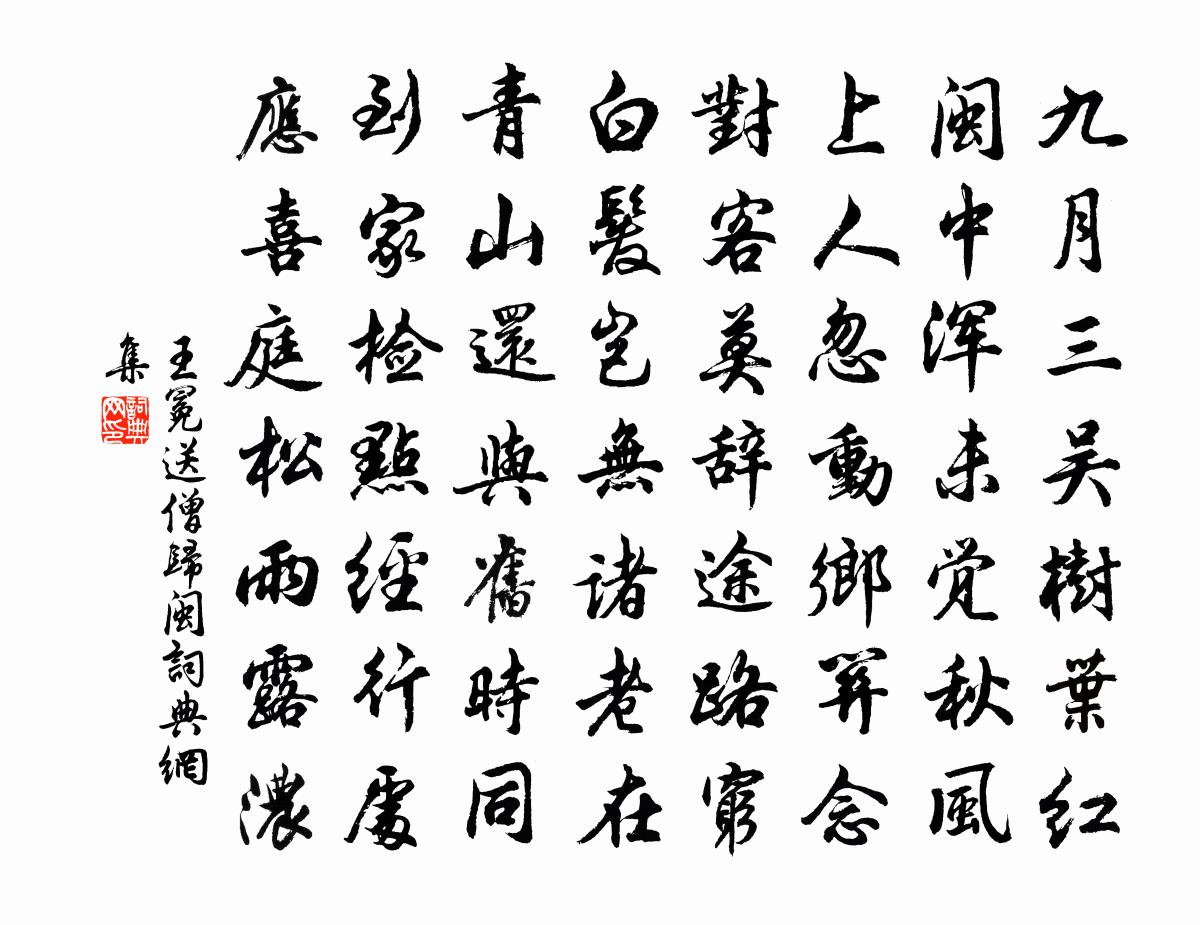 九月三吴樹葉红
闽中浑未觉秋風
上人忽動鄉關念
對客莫辞途路窮
白髮豈無諸老在
青山還與舊時同
到家檢點經行處
應喜庭松雨露濃
王冕送僧歸闽詞典網
集
詞典网印